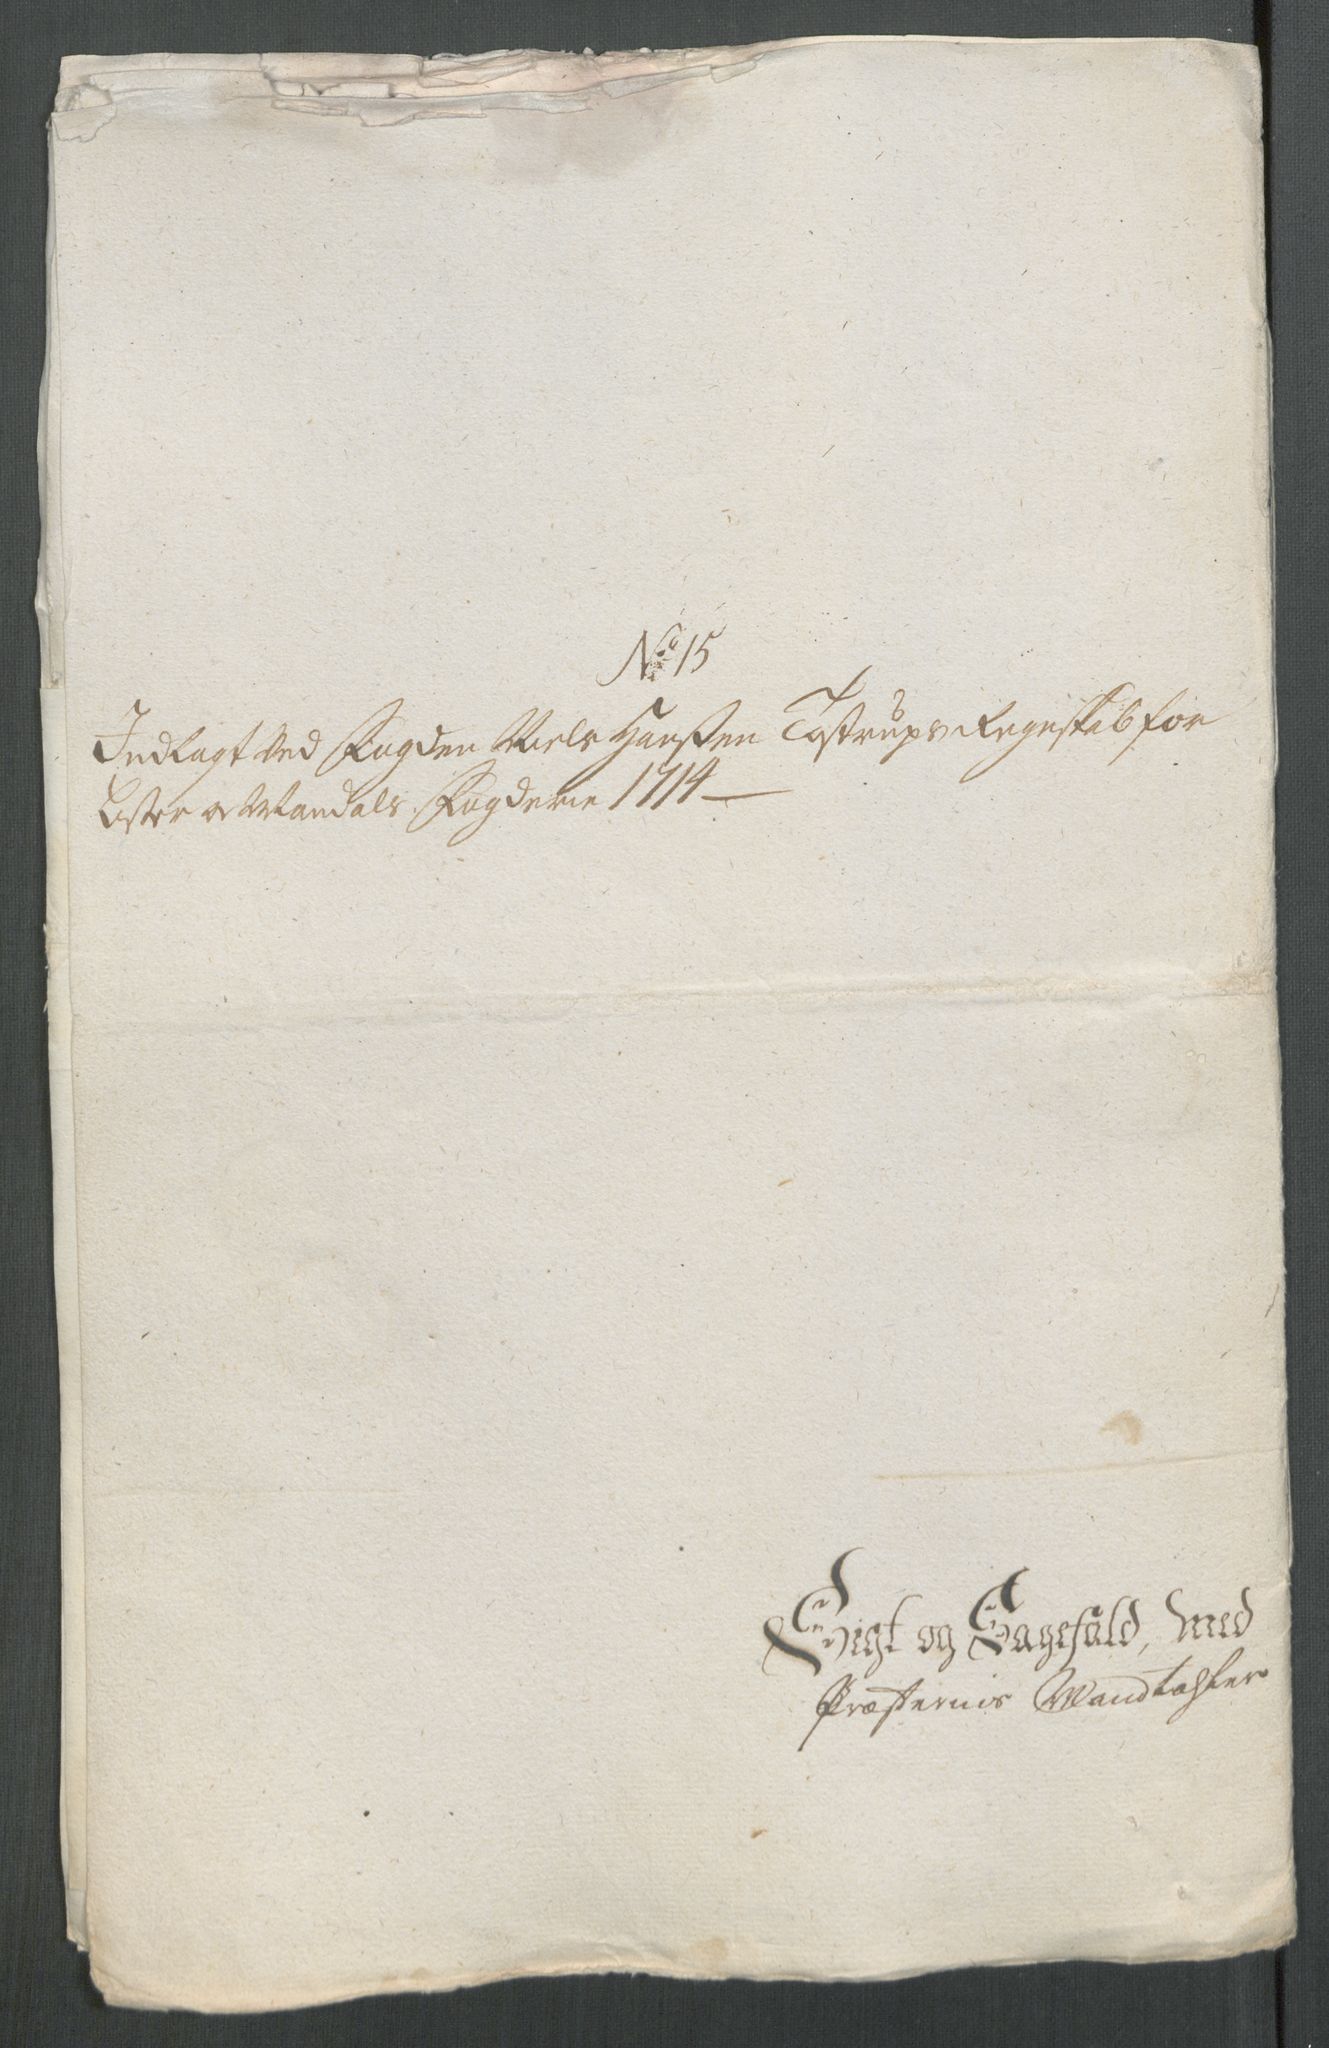 No 15
Indlagt Ved Fogden Niels Hanßen Tostrups Regnskab for
Lister og Mandals Fogderie 1714
Sigt og Sagefald, med
Præsternis Mandtahler